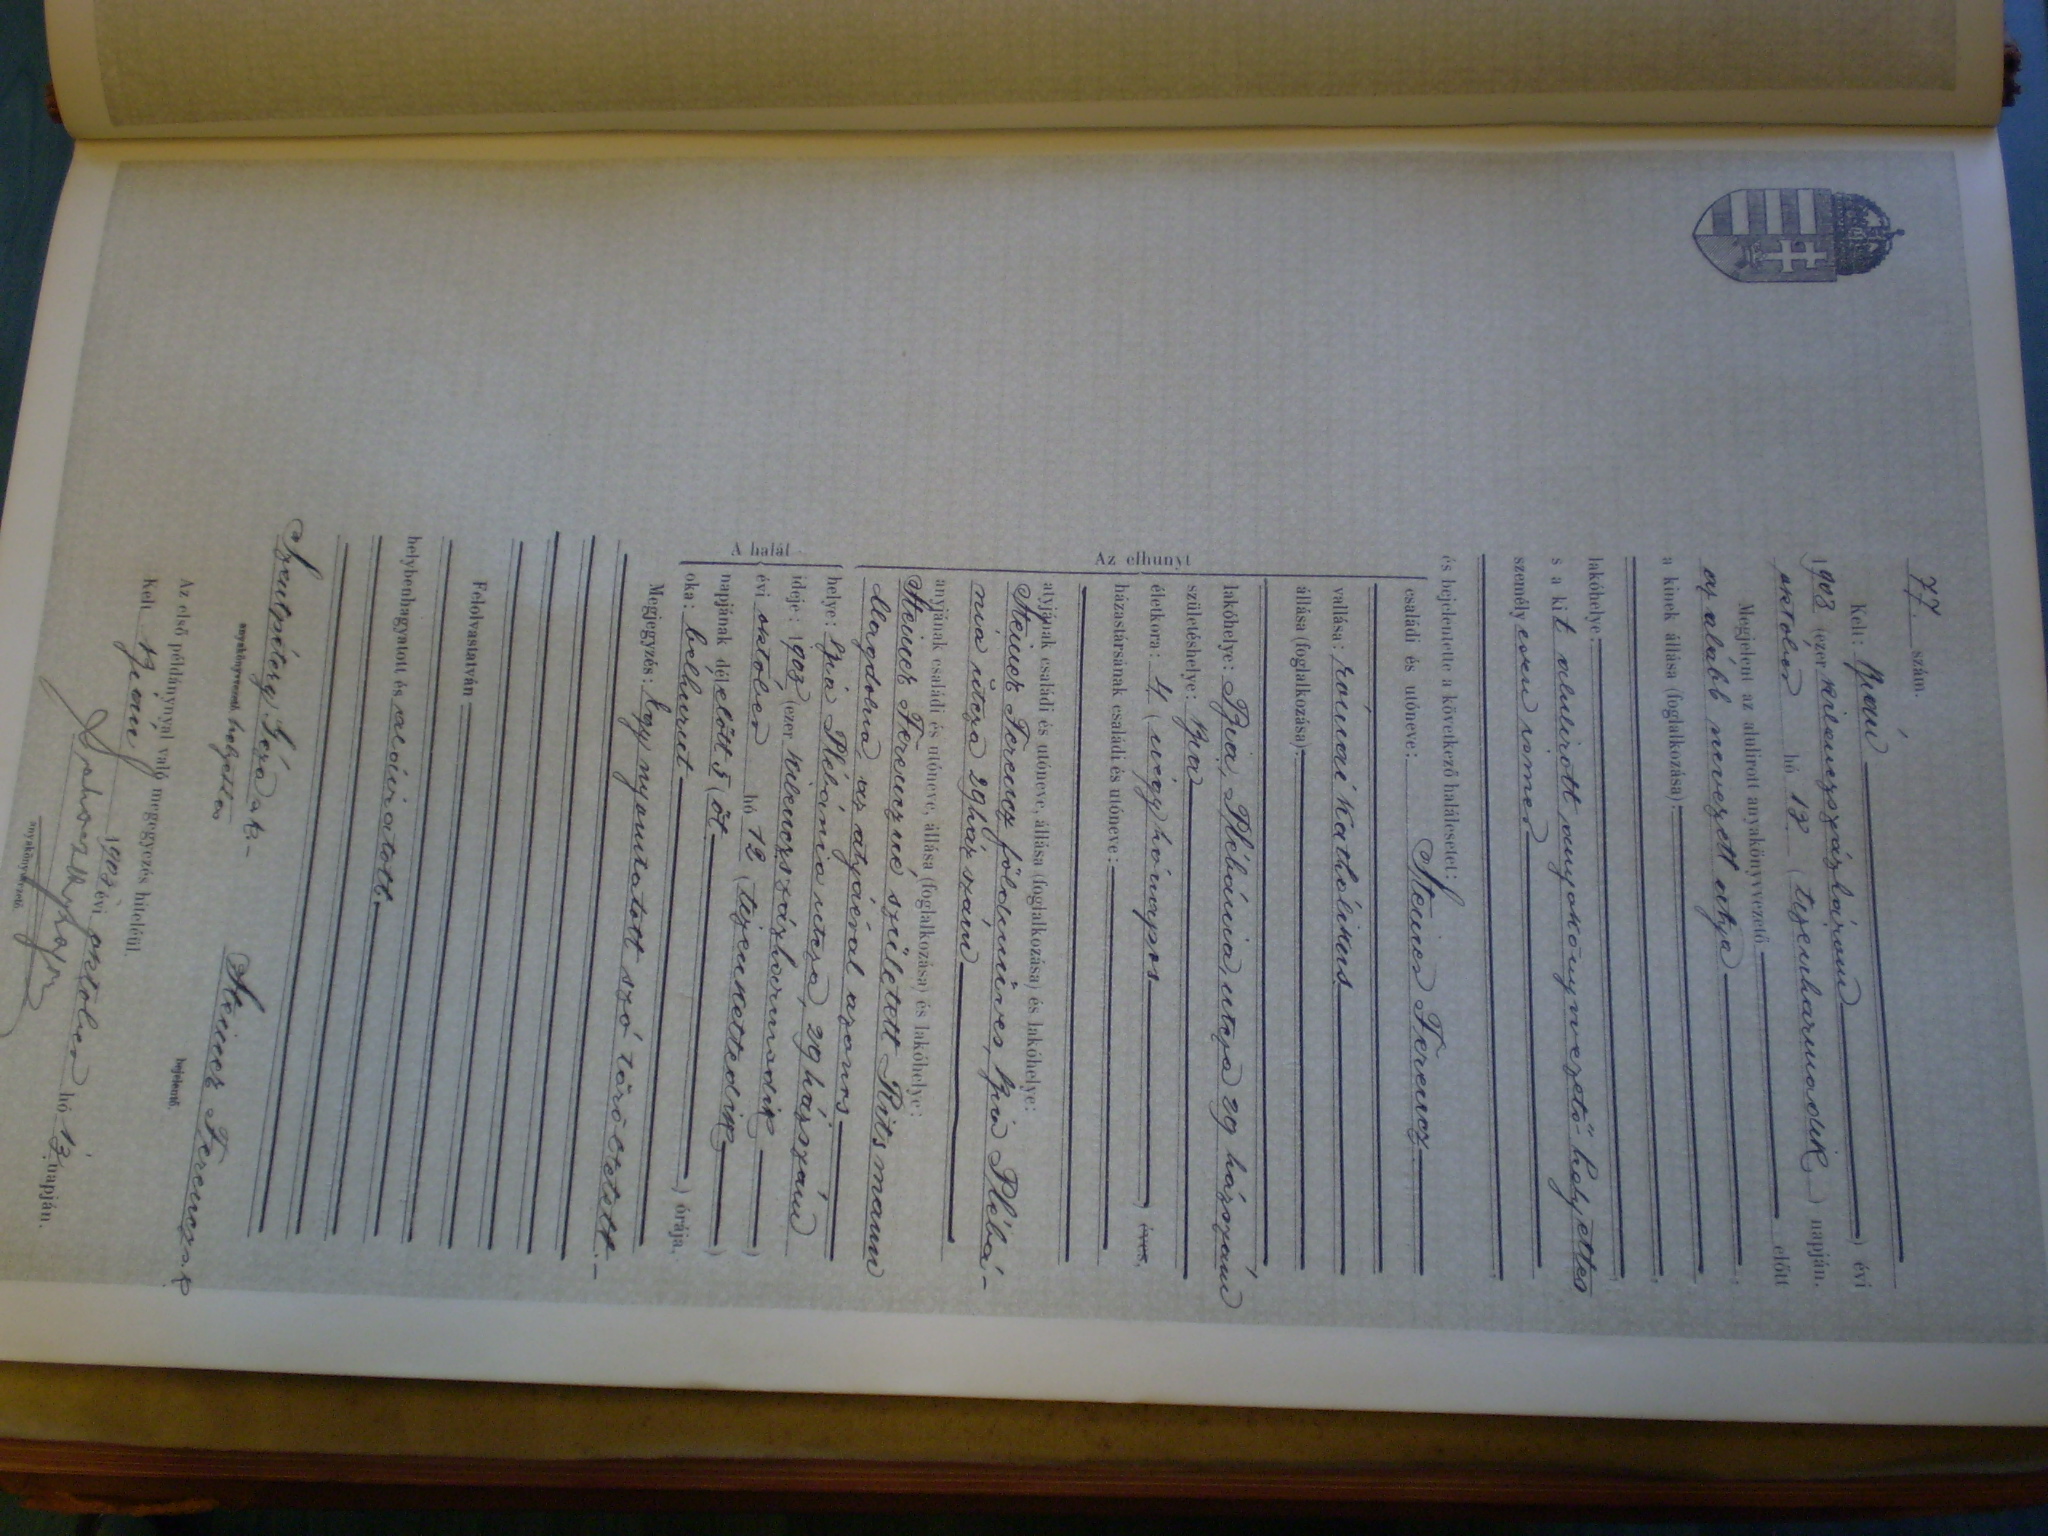 77. szám.
Kelt: Bián
1903 (ezer kilenczszázhárom) évi
október hó 13 (tizenharmadik) napján.
Megjelent az alulirott anyakönyvvezető előtt
az alább nevezett atyja,
a kinek állása (foglalkozása)
lakóhelye:
s a kit alulirott anyakönyvvezető helyettes
személyesen ismer,
és bejelentette a következő halálesetet:
Az elhunyt
családi és utóneve: Steiner Ferencz
vallása: római katholikus
állása (foglalkozása):
lakóhelye: Bia, Plébánia utcza 29 házszám
születéshelye: Bia
életkora: 4 (négy) hónapos éves,
házastársának családi és utóneve:
atyjának családi és utóneve, állása (foglalkozása) és lakóhelye:
Steiner Ferencz földmüves, Bia Plébá-
nia útcza 29 ház szám
anyjának családi és utóneve, állása (foglalkozása) és lakóhelye:
Steiner Ferenczné született Ritsmann
Magdolna az atyáéval azonos
A halál
helye: Bia Plébánia utcza, 29 házszám
ideje: 1903 (ezer kilenczszázharmadik
évi október hó 12 (tizenkettedik)
napjának délelőtt 5 (öt) órája.
oka: bélhurut
Megjegyzés: Egy nyomtatott szó töröltetett.-
Felolvastatván
helybenhagyatott és aláiratott.
Szentpétery Géza s.k.-
anyakönyvvezető helyettes
Steiner Ferencz s.k.
bejelentő.
Az első példánynyal való megegyezés hiteléül.
Kelt Bián 1903 évi október hó 13 napján.
anyakönyvvezető.